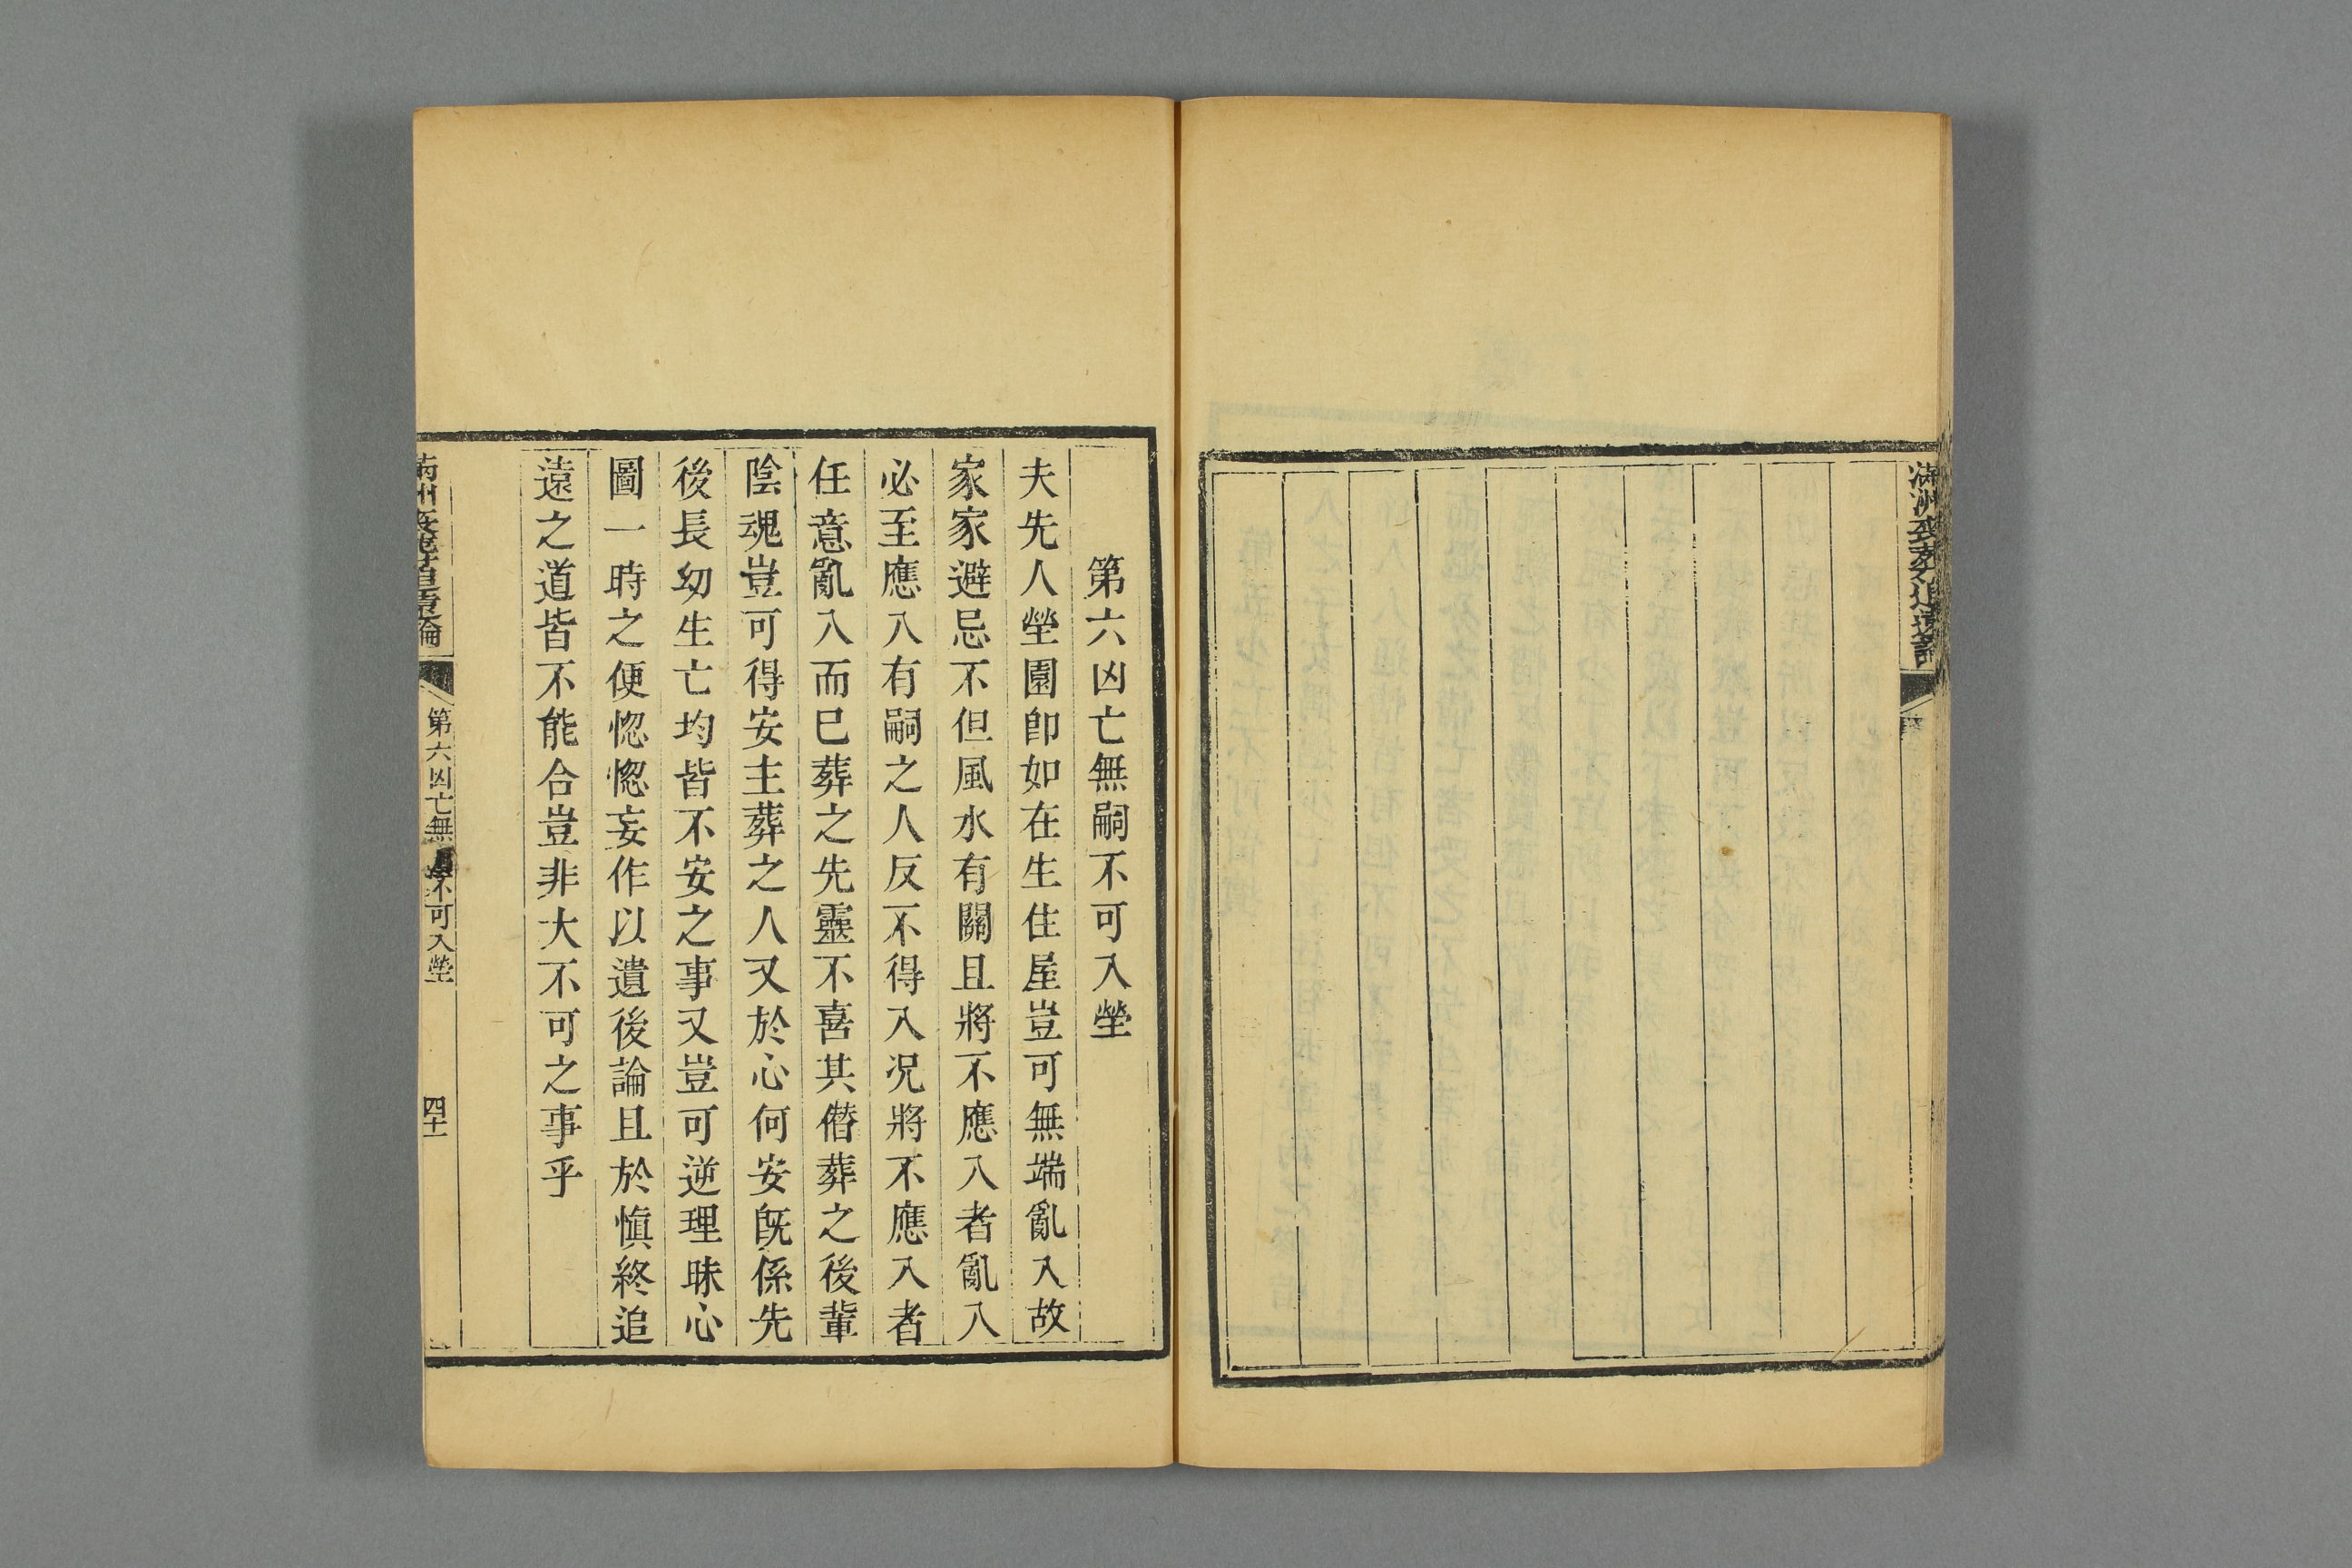 第六凶亡無嗣不可入塋
夫先人塋園卽如在生住屋豈可無端亂入故
家家避忌不但風水有關且將不應入者亂入
必至應入有嗣之人反不得入况將不應入者
任意亂入而已葬之先靈不喜其僭葬之後輩
陰魂豈可得安主葬之人又於心何安旣係先
後長幼生亡均皆不安之事又豈可逆理昧心
圖一時之便惚惚妄作以遺後論且於愼終追
遠之道皆不能合豈非大不可之事乎
第六凶亡無 不可入塋
四十一